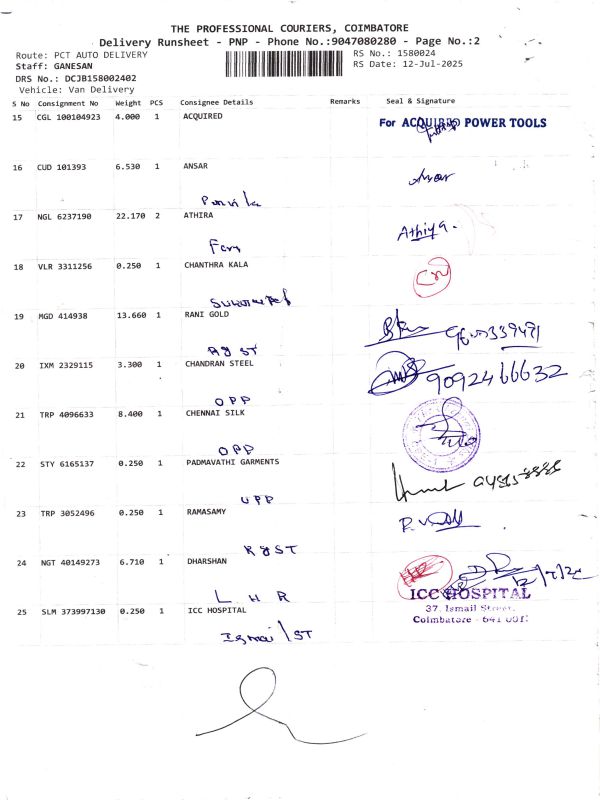 THE PROFESSIONAL COURIERS, COIMBATORE
Delivery Runsheet - PNP - Phone No.:9047080280 - Page No.:2
Route: PCT AUTO DELIVERY
RS No.: 1580024
Staff: GANESAN
RS Date: 12-Jul-2025
DRS No.: DCJB158002402
Vehicle: Van Delivery
S No Consignment No Weight PCS Consignee Details Remarks Seal & Signature
15 CGL 100104923 4.000 1 ACQUIRED For ACQUIRED POWER TOOLS
16 CUD 101393 6.530 1 ANSAR
Ansar
17 NGL 6237190 22.170 2 ATHIRA
Athiya.
18 VLR 3311256 0.250 1 CHANTHRA KALA
19 MGD 414938 13.660 1 RANI GOLD
R8 ST
20 IXM 2329115 3.300 1 CHANDRAN STEEL 9092466632
OPP
21 TRP 4096633 8.400 1 CHENNAI SILK
OPP
22 STY 6165137 0.250 1 PADMAVATHI GARMENTS
UPP
23 TRP 3052496 0.250 1 RAMASAMY
R8 ST
24 NGT 40149273 6.710 1 DHARSHAN
L H R
ICC HOSPITAL
25 SLM 373997130 0.250 1 ICC HOSPITAL 37, Ismail Street,
Coimbatore - 641 001
Ismail ST